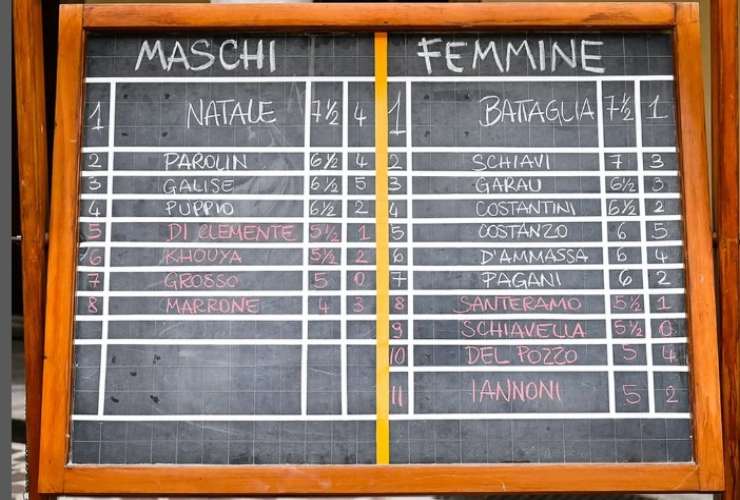 MASCHI
1 NATALE 7½ 4
2 PAROLIN 6½ 4
3 GALISE 6½ 5
4 PUPPIO 6½ 2
5 DI CLEMENTE 5½ 1
6 KHOUYA 5½ 2
7 GROSSO 5 0
8 MARRONE 4 3
FEMMINE
1 BATTAGLIA 7½ 1
2 SCHIAVI 7 3
3 GARAU 6½ 3
4 COSTANTINI 6½ 2
5 COSTANZO 6 5
6 D'AMMASSA 6 4
7 PAGANI 6 2
8 SANTERAMO 5½ 1
9 SCHIAVELLA 5½ 0
10 DEL POZZO 5 4
11 IANNONI 5 2